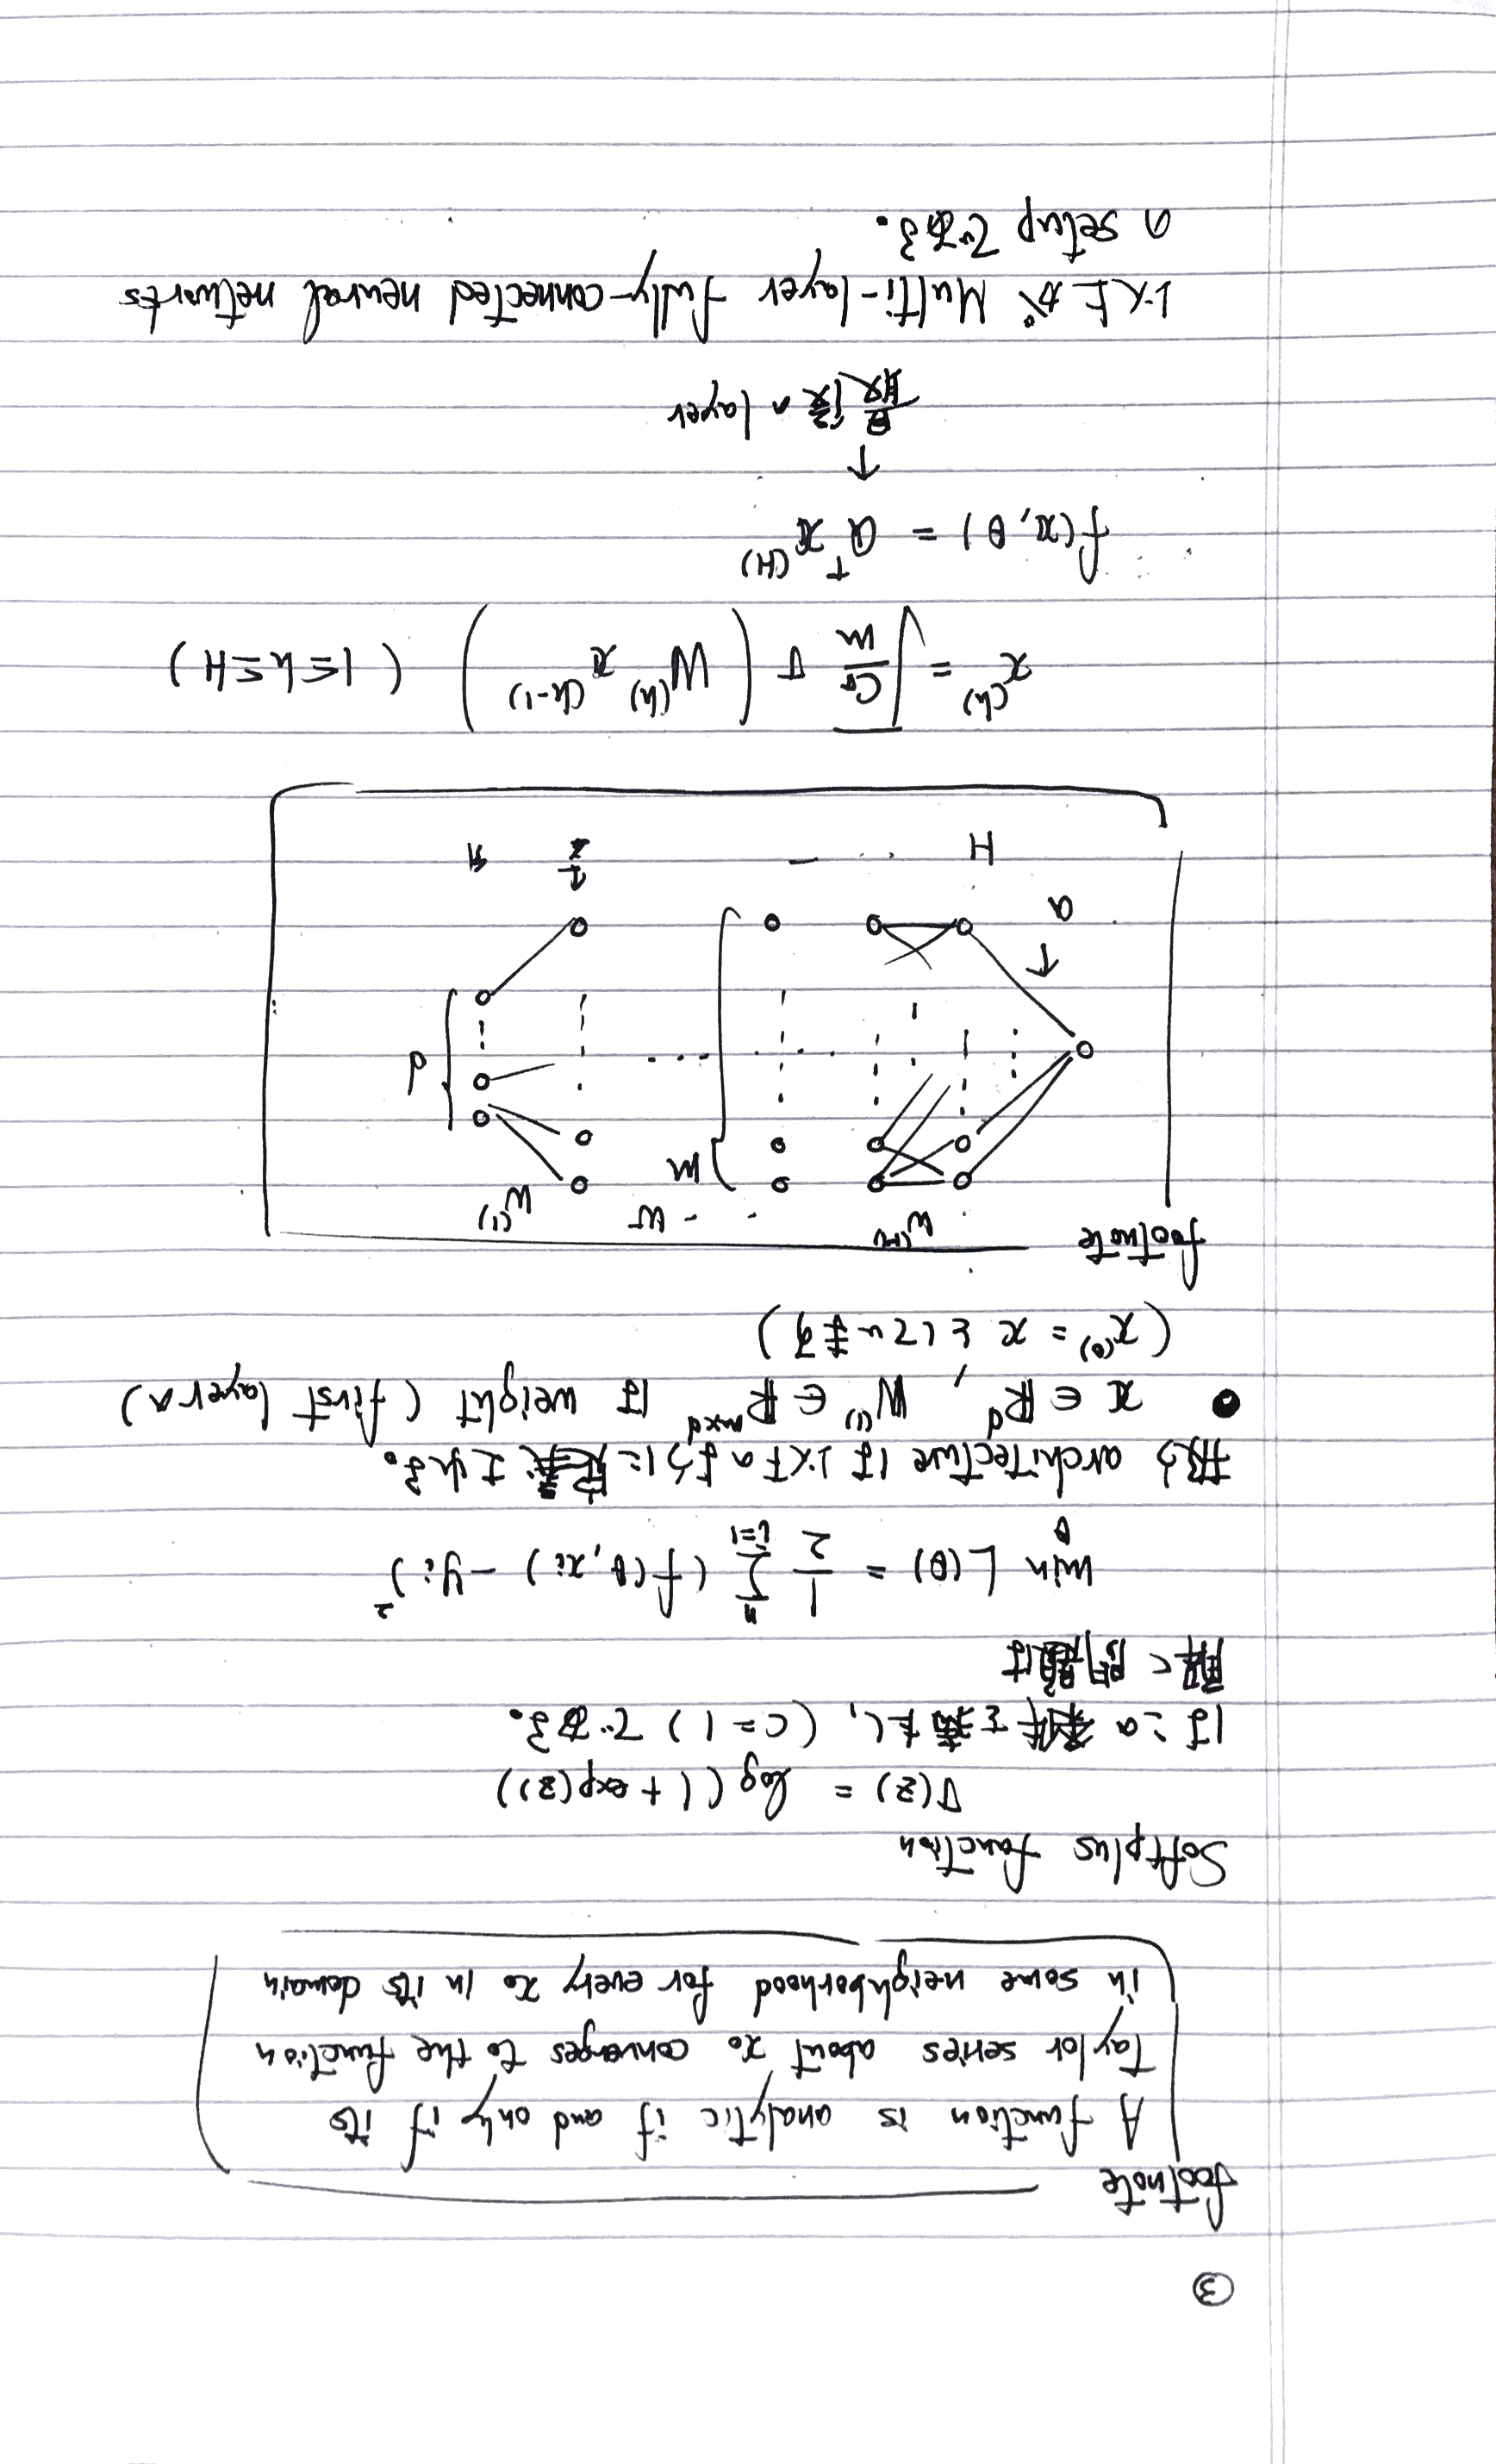 ③
footnote
A function is analytic if and only if its
Taylor series about x₀ converges to the function
in some neighborhood for every x₀ in its domain
Softplus function
σ(z) = log (1 + exp(z))
はこの条件を満たし, (c = 1) である。
min_θ L(θ) = 1/2 Σ_{i=1}^{n} (f(θ, xᵢ) - yᵢ)²
architecture は以下のように定義される。
• x ∈ ℝ^d, W^(1) ∈ ℝ^{m×d} は weight (first layer の)
(x^(0) = x としている)
footnote
W^(H) - - W W^(1)
m
d
a
H - 2 1
x^(h) = √(c_σ/m) σ (W^(h) x^(h-1)) (1 ≤ h ≤ H)
f(x, θ) = a^T x^(H)
↓
出力の layer
以上が Multi-layer fully-connected neural networks
の setup である。